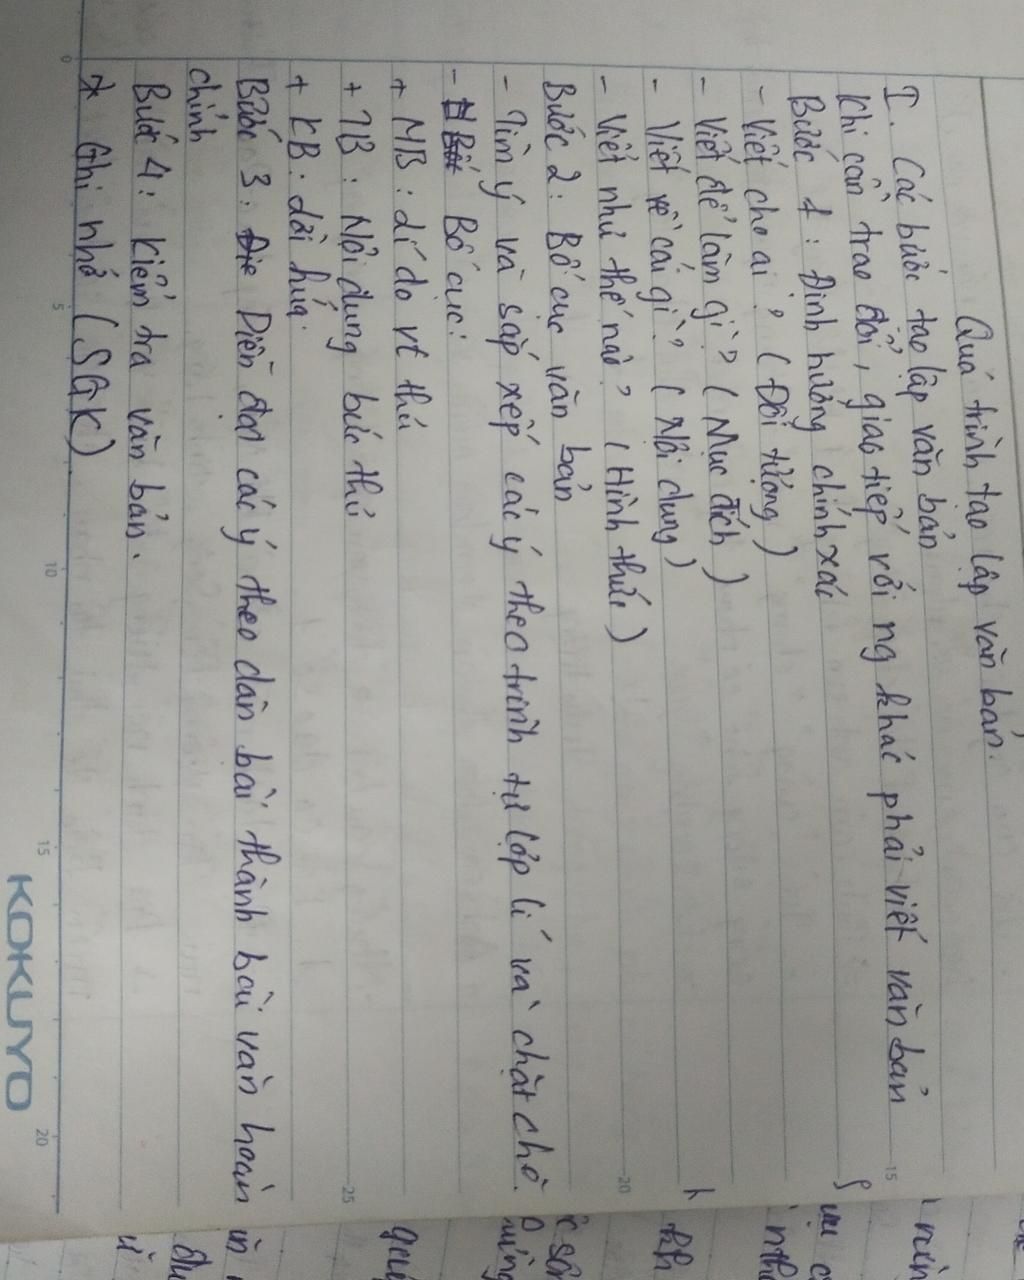 Quá trình tạo lập văn bản.
I. Các bước tạo lập văn bản
Khi cần trao đổi, giao tiếp với ng khác phải viết văn bản
Bước 1: Định hướng chính xác
- Viết cho ai? (Đối tượng)
- Viết để làm gì? (Mục đích)
- Viết về cái gì? (Nội dung)
- Viết như thế nào? (Hình thức)
Bước 2: Bố cục văn bản
- Tìm ý và sắp xếp các ý theo trình tự lớp lí và chặt chẽ.
- Bố cục:
+ MB: lí do vt thư
+ TB: Nội dung bức thư
+ KB: lời hứa.
Bước 3: Diễn đạt các ý theo dàn bài thành bài văn hoàn
chỉnh
Bước 4: Kiểm tra văn bản.
* Ghi nhớ (SGK)
KOKUYO
0
5
10
15
20
15
20
25